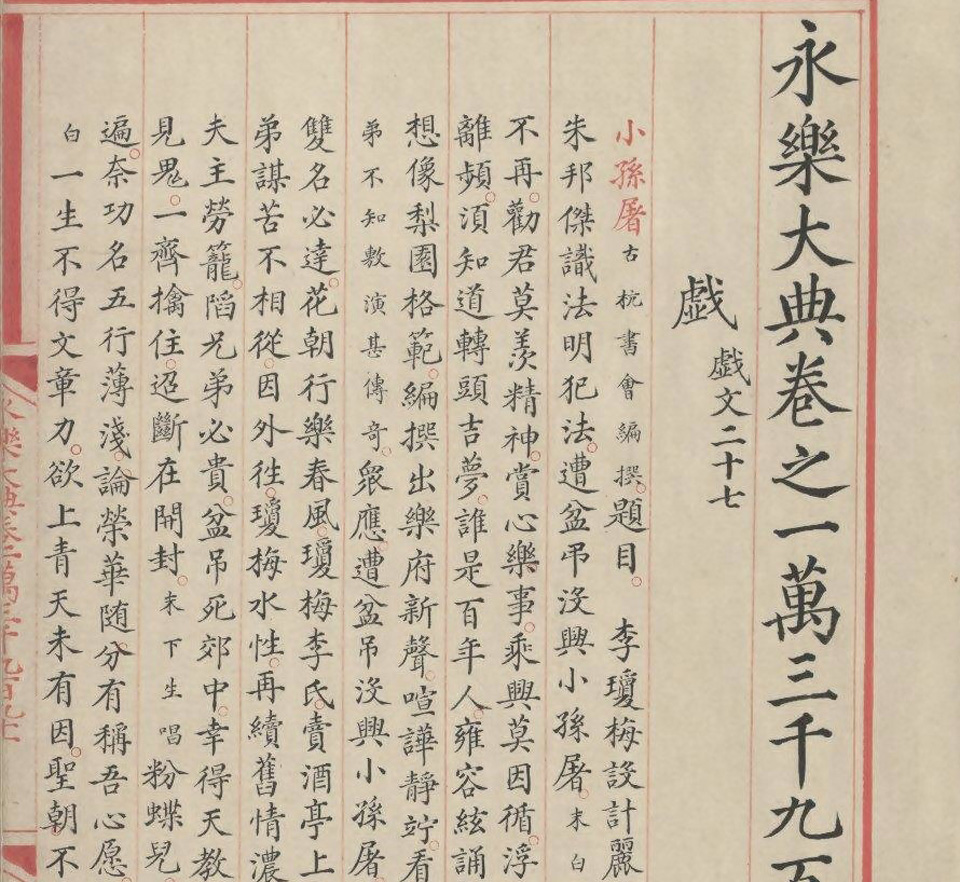 永樂大典卷之一萬三千九百
戯 戯文二十七
小孫屠 古杭書會編撰。題目。 李瓊梅設計麗
朱邦傑識法明犯法。遭盆吊沒興小孫屠。末白
不再。勸君莫羨精神。賞心樂事。乘興莫因循。浮
離頻。湏知道轉頭吉夢。誰是百年人。雍容絃誦
想像梨園格範。編撰出樂府新聲。喧譁靜竚。看
弟不知敷演甚傳奇。衆應。遭盆吊沒興小孫屠
雙名必達。花朝行樂春風。瓊梅李氏。賣酒亭上
弟謀苦不相從。因外徃。瓊梅水性。再續舊情濃
夫主勞籠。陷兄弟必貴。盆吊死郊中。幸得天教
見鬼。一齊擒住。迢斷在開封。末下生唱粉蝶兒
遍。奈功名五行薄淺。論榮華随分有稱吾心愿
白一生不得文章力。欲上青天未有因。聖朝不